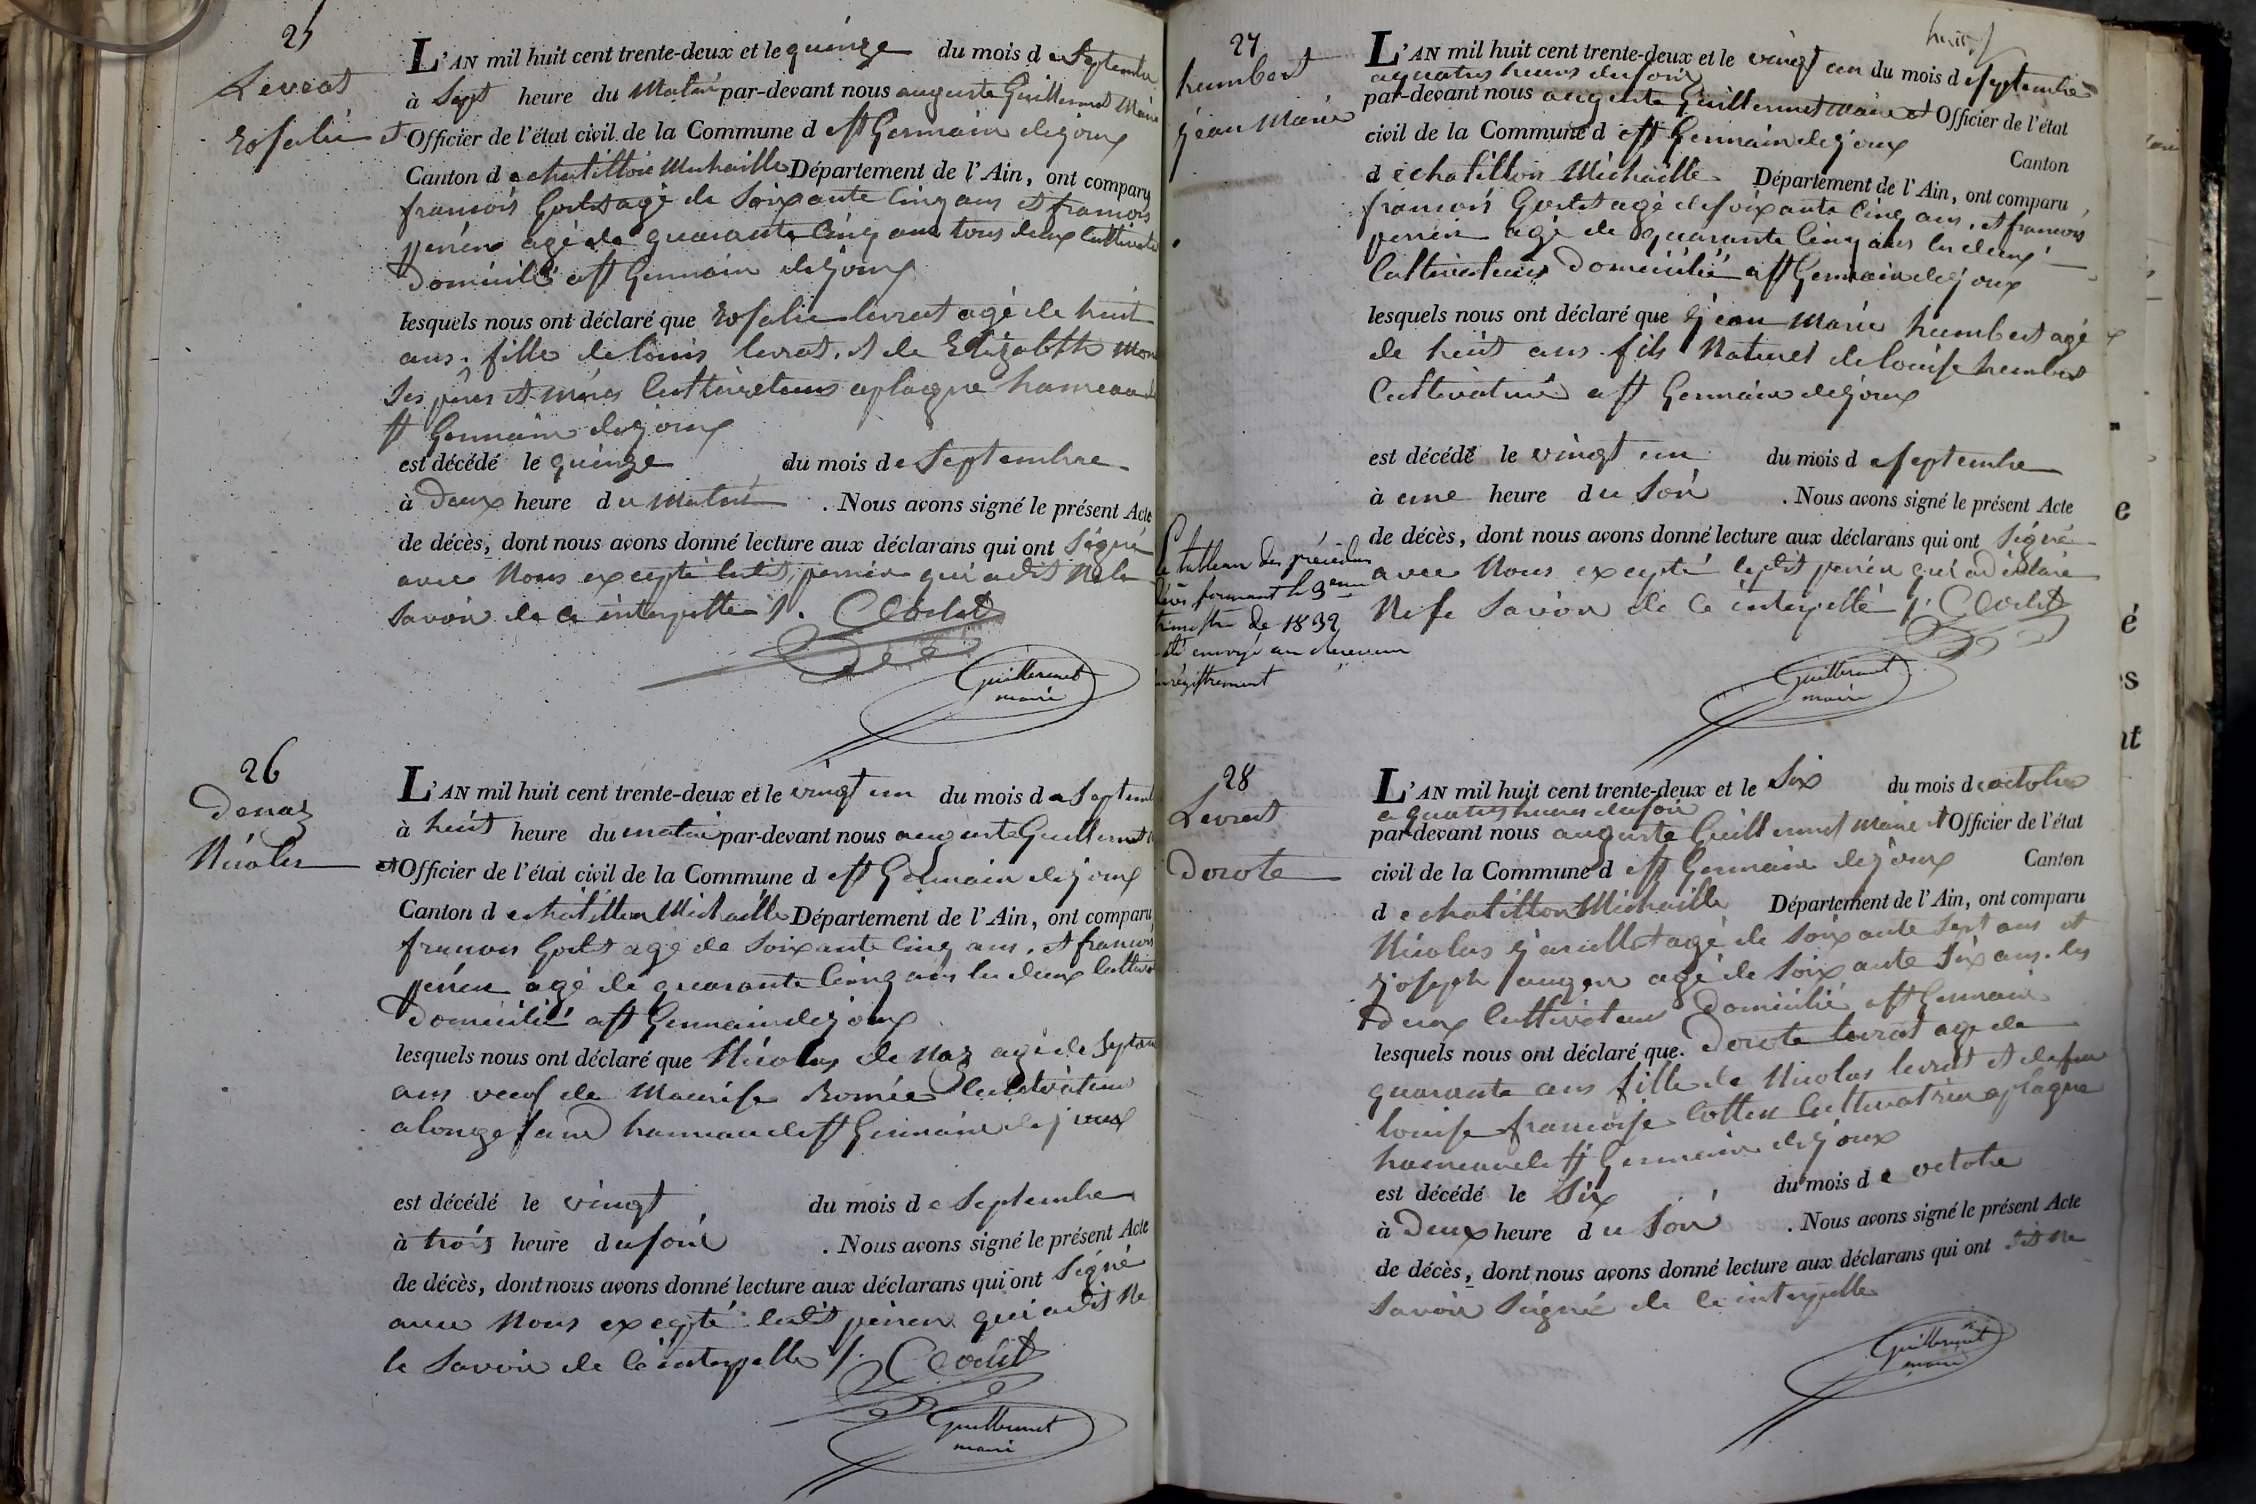 25
Levrat
Rosalie
L'AN mil huit cent trente-deux et le quinze du mois de Septembre
à Sept heure du Matin par-devant nous auguste Guillermet Maire
et Officier de l'état civil de la Commune d est Germain dejoux
Canton d echatillon Michaille Département de l'Ain, ont comparu
francois Godet agé de Soixante Cinq ans et francois
perrin agé de quarante Cinq ans tous deux Cultivate
Domicilié a st Germain dejoux
lesquels nous ont déclaré que Rosalie levrat agé de huit
ans. fille de louis levrat. et de Elizabeth Mon
Ses pères et mères Cultivateurs a plagne hameau de
st Germain dejoux
est décédé le quinze du mois de Septembre
à Deux heure du Matin . Nous avons signé le présent Acte
de décès, dont nous avons donné lecture aux déclarans qui ont Signé
avec Nous excepté ledit perrin qui a dit Ne le
Savoir de ce interpellé /. Godet
Guillermet
maire
26
denaz
Nicolas
L'AN mil huit cent trente-deux et le vingt un du mois de Septemb
à huit heure du matin par-devant nous auguste Guillermet
et Officier de l'état civil de la Commune d est Germain dejoux
Canton d echatillon Michaille Département de l'Ain, ont comparu
francois Godet agé de Soixante Cinq ans. et francois
perrin agé de quarante Cinq ans les deux Cultivat
Domicilié a st Germain dejoux
lesquels nous ont déclaré que Nicolas de Naz agé de Septan
ans veuf de Maurise Romée Cultivateur
a longefand hameau de st Germain dejoux
est décédé le vingt du mois de Septembre
à trois heure du soir . Nous avons signé le présent Acte
de décès, dont nous avons donné lecture aux déclarans qui ont Signé
avec Nous excepté ledit perrin qui a dit Ne
le Savoir de ce interpellé /. Godet
Guillermet
maire
huit
27
humbert
jean Marie
L'AN mil huit cent trente-deux et le vingt un du mois de Septembre
a quatres heures du soir
par-devant nous auguste Guillermet Maire et Officier de l'état
civil de la Commune d est Germain dejoux Canton
d echatillon Michaille Département de l'Ain, ont comparu
francois Godet agé de soixante Cinq ans. et francois
perrin agé de quarante Cinq ans les deux
Cultivateurs Domicilié a st Germain dejoux
lesquels nous ont déclaré que jean Marie humbert agé
de huit ans. fils Naturel de louise humbert
Cultivatrice a st Germain dejoux
est décédé le vingt un du mois de Septembre
à une heure du Soir . Nous avons signé le présent Acte
de décès, dont nous avons donné lecture aux déclarans qui ont Signé
avec Nous excepté ledit perrin qui a déclaré
Ne le Savoir de ce interpellé /. Godet
Guillermet
maire
le tableau des précédens
décès formant le 3eme
trimestre de 1832
été envoyé au receveur
enregistrement
28
Levrat
Dorote
L'AN mil huit cent trente-deux et le Six du mois de octobre
a quatres heures du soir
par-devant nous auguste Guillermet Maire et Officier de l'état
civil de la Commune d est Germain dejoux Canton
d echatillon Michaille Département de l'Ain, ont comparu
Nicolas agé de Soixante Sept ans et
joseph agé de Soixante Six ans. les
Deux Cultivateur Domicilié a st Germain
lesquels nous ont déclaré que. Dorote levrat agé de
quarante ans fille de Nicolas levrat et de feu
louise francoise Cotten Cultivatrice a plagne
hameau de st Germain dejoux
est décédé le Six du mois de octobre
à Deux heure du Soir . Nous avons signé le présent Acte
de décès, dont nous avons donné lecture aux déclarans qui ont dit Ne
Savoir Signé de ce interpellé
Guillermet
maire